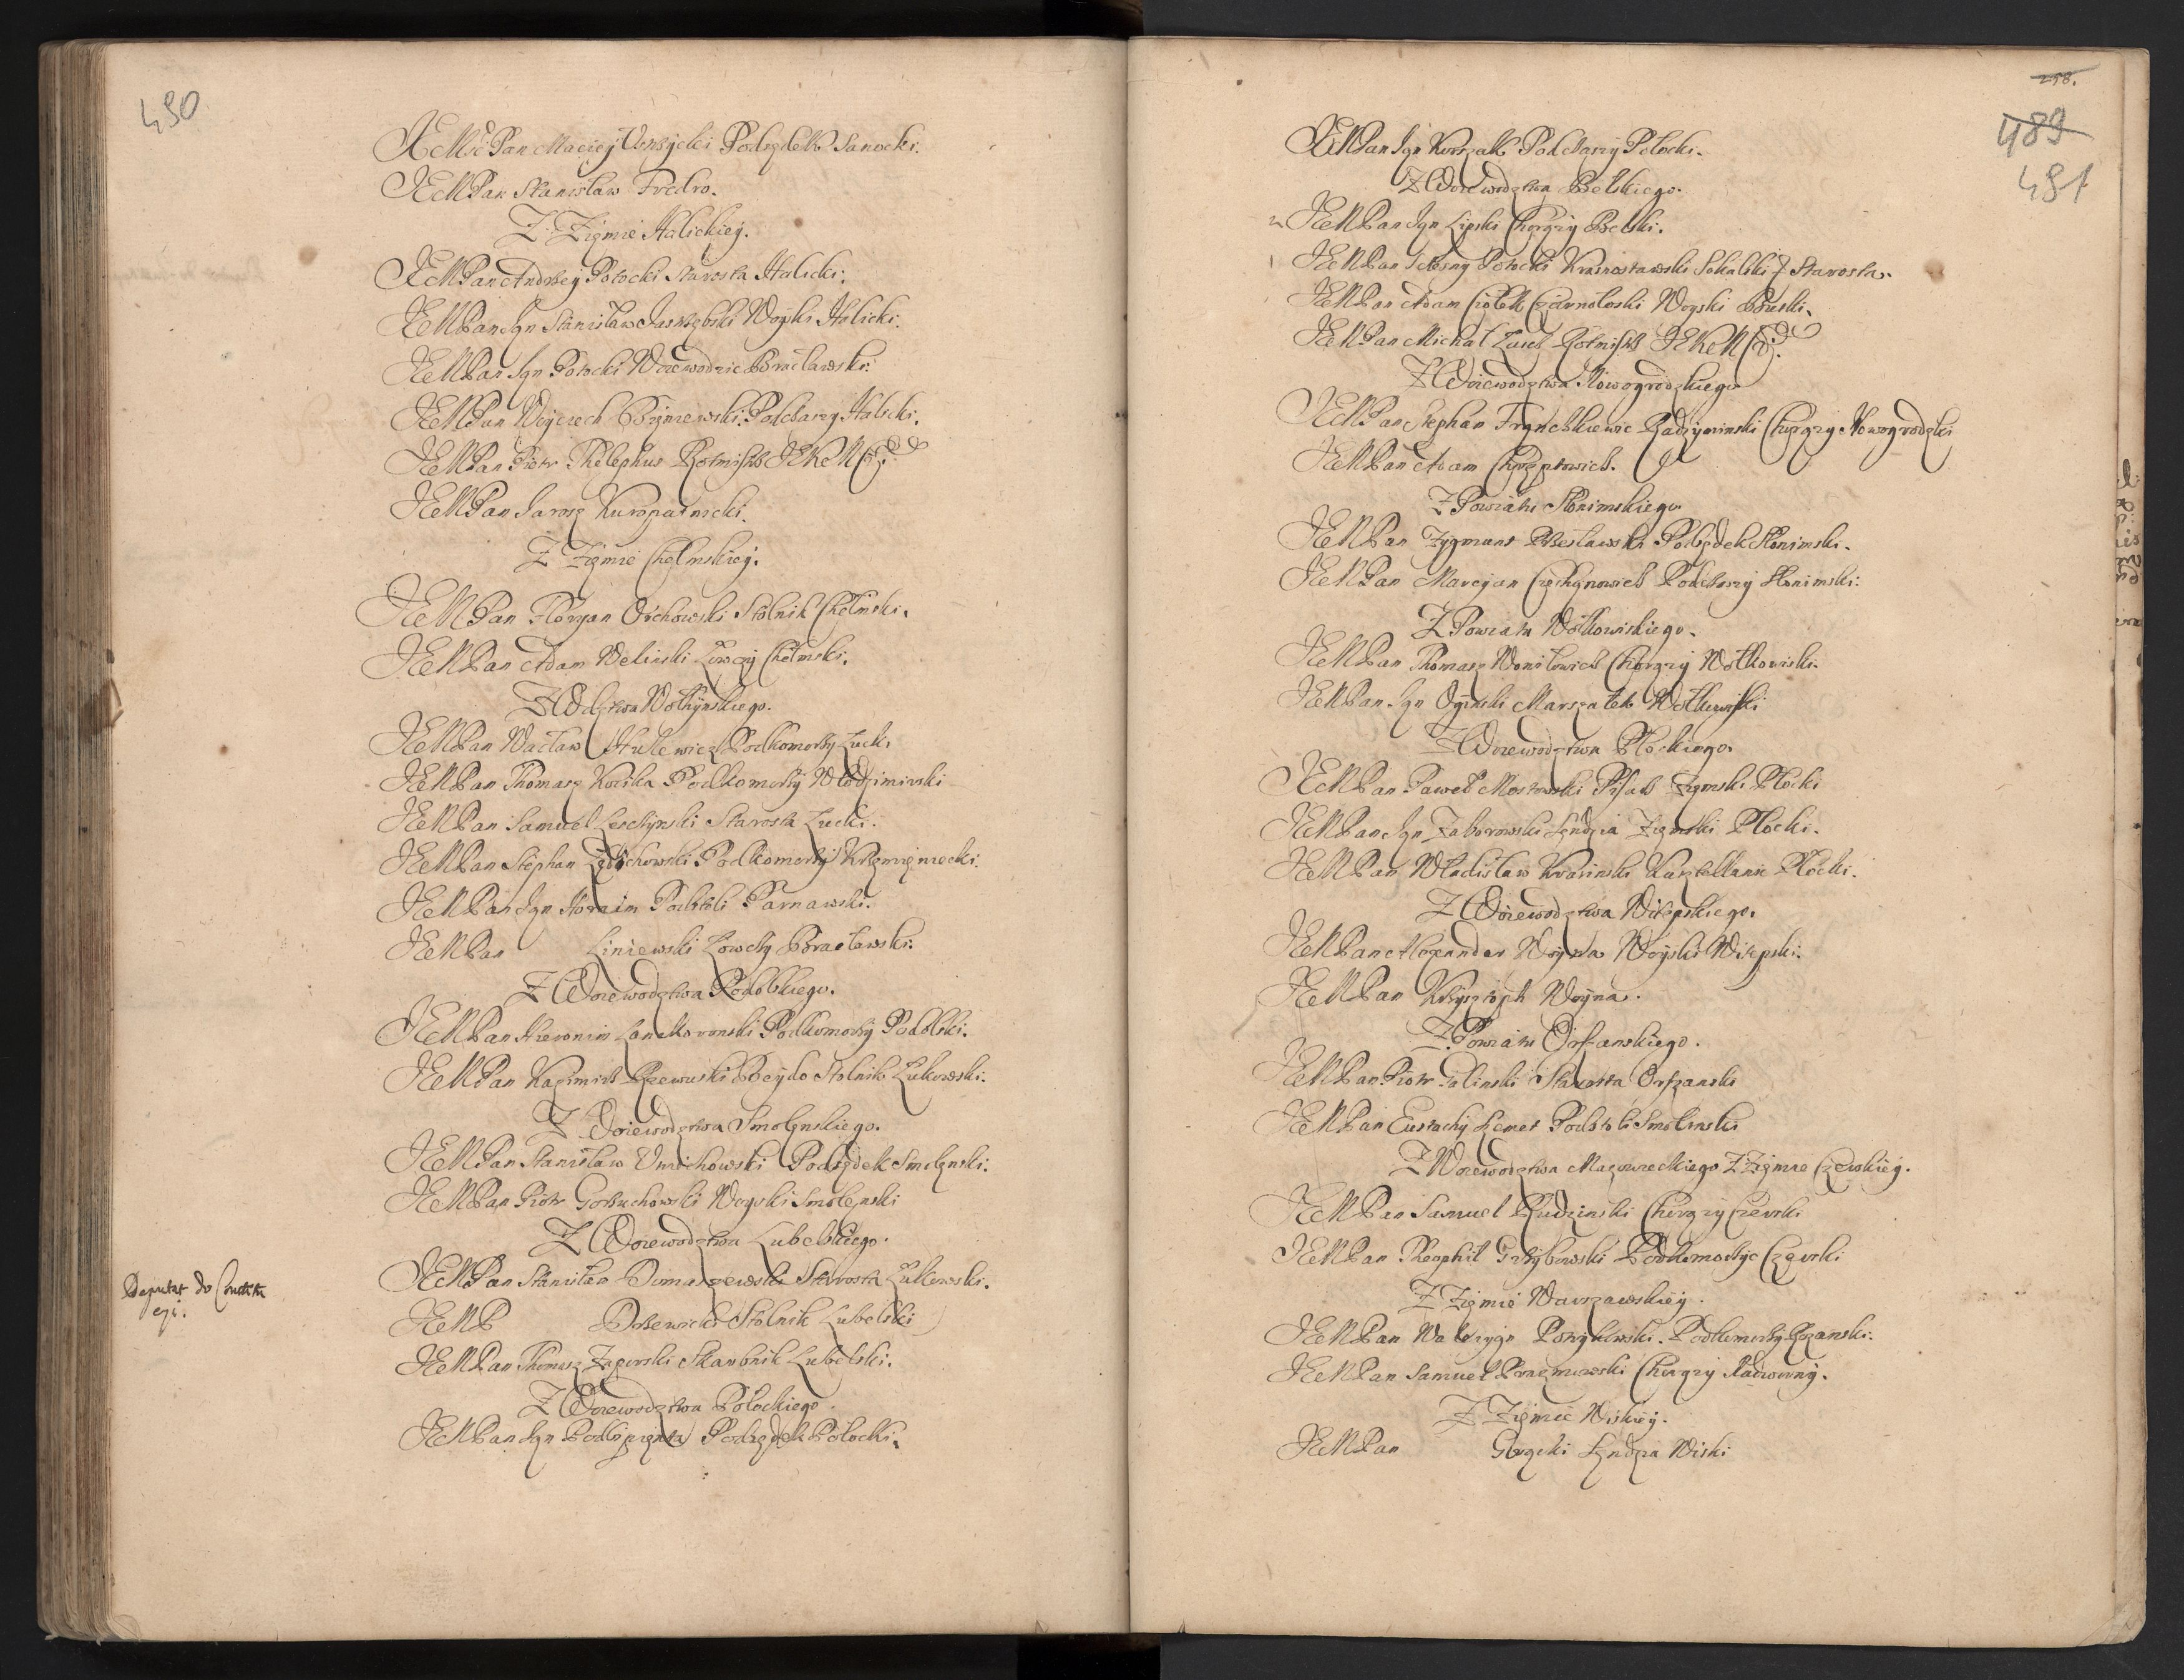 490
JEMśc Pan Maciey Ustrzycki Podsędek Sanocki.
JEMPan Stanisław Fredro.
Z Ziemie Halickiey.
JEMPan Andrzey Potocki Starosta Halicki.
JEMPan Jan Stanisław Jaskólski Woyski Halicki.
JEMPan Jan Potocki Woiewodzic Bracławski.
JEMPan Woyciech Podczaszy Halicki.
JEMPan Piotr Thelephus Rotmistrz JEKeM
JEMPan Jarosz Kuropatnicki.
Z Ziemie Chełmskiey.
JEMPan Floryan Orchowski Stolnik Chełmski.
JEMPan Adam Weliński Łowczy Chełmski.
Z Wdztwa Wołyńskiego.
JEMPan Wacław Hulewicz Podkomorzy Łucki
JEMPan Thomasz Kozika Podkomorzy Włodzimirski
JEMPan Samuel Leszczynski Starosta Łucki.
JEMPan Stephan Ledochowski Podkomorzy Krzemieniecki.
JEMPan Jan Hornim Podstoli Parnawski.
JEMPan Liniewski Łowczy Bracławski.
Z Woiewodztwa Podolskiego.
JEMPan Hieronim Lanckoronski Podkomorzy Podolski.
JEMPan Kazimirz Rzewuski Beydo Stolnik Łukowski.
Z Woiewodztwa Smolenskiego.
JEMPan Stanisław Uniechowski Podsędek Smolenski.
JEMPan Piotr Gorzuchowski Woyski Smolenski
Z Woiewodztwa Lubelskiego.
Deputat do Constitu
cyi.
JEMPan Stanisław Domaszewski Starosta Łukowski.
JEMP Drzewicki Stolnik Lubelski
JEMPan Thomasz Zaporski Skarbnik Lubelski.
Z Woiewodztwa Połockiego.
JEMPan Jan Podbipięnta Podsędek Połocki.
258.
489
491
JEMPan Jan Korsak Podczaszy Połocki.
Z Woiewodztwa Bełskiego.
2 JEMPan Jan Lipski Chorąży Bełski.
1 JEMPan Sczęsny Potocki Krasnostawski Sokalski & Starosta.
JEMPan Adam Ciołek Czarnołoski Woyski Buski.
JEMPan Michał Łasch Rotmistrz JEKeM
Z Woiewodztwa Nowogrodzkiego
JEMPan Stephan Frąnckiewic Radzyminski Chorąży Nowogrodzki
JEMPan Adam Chreptowicz.
Z Powiatu Słonimskiego
JEMPan Zygmunt Przecławski Podsędek Słonimski.
JEMPan Marcyan Czechonowicz Podczaszy Słonimski.
Z Powiatu Wołkowiskiego.
JEMPan Thomasz Woniłowicz Chorąży Wołkowiski.
JEMPan Jan Oginski Marszałek Wołkowiski
Z Woiewodztwa Płockiego.
JEMPan Paweł Mostowski Pisarz Ziemski Płocki
JEMPan Jan Zaborowski Sendzia Ziemski Płocki.
JEMPan Władisław Krasinski Kasztellanic Płocki.
Z Woiewodztwa Witepskiego.
JEMPan Alexander Woyna Woyski Witepski.
JEMPan Krzysztoph Woyna.
Z Powiatu Orszanskiego.
JEMPan Piotr Galinski Starosta Orszanski
JEMPan Eustachy Szemet Podstoli Smolenski
Z Woiewodztwa Mazowieckiego Z Ziemie Czerskiey.
JEMPan Samuel Rudzinski Chorąży Czerski
JEMPan Theophil Grzybowski Podkomorzyc Czerski
Z Ziemie Warszawskiey.
JEMPan Waleryan Podkomorzy Rozanski.
JEMPan Samuel Prazmowski Chorąży Nadworny.
Z Ziemie Wiskiey.
JEMPan Glinski Sendzia Wiski